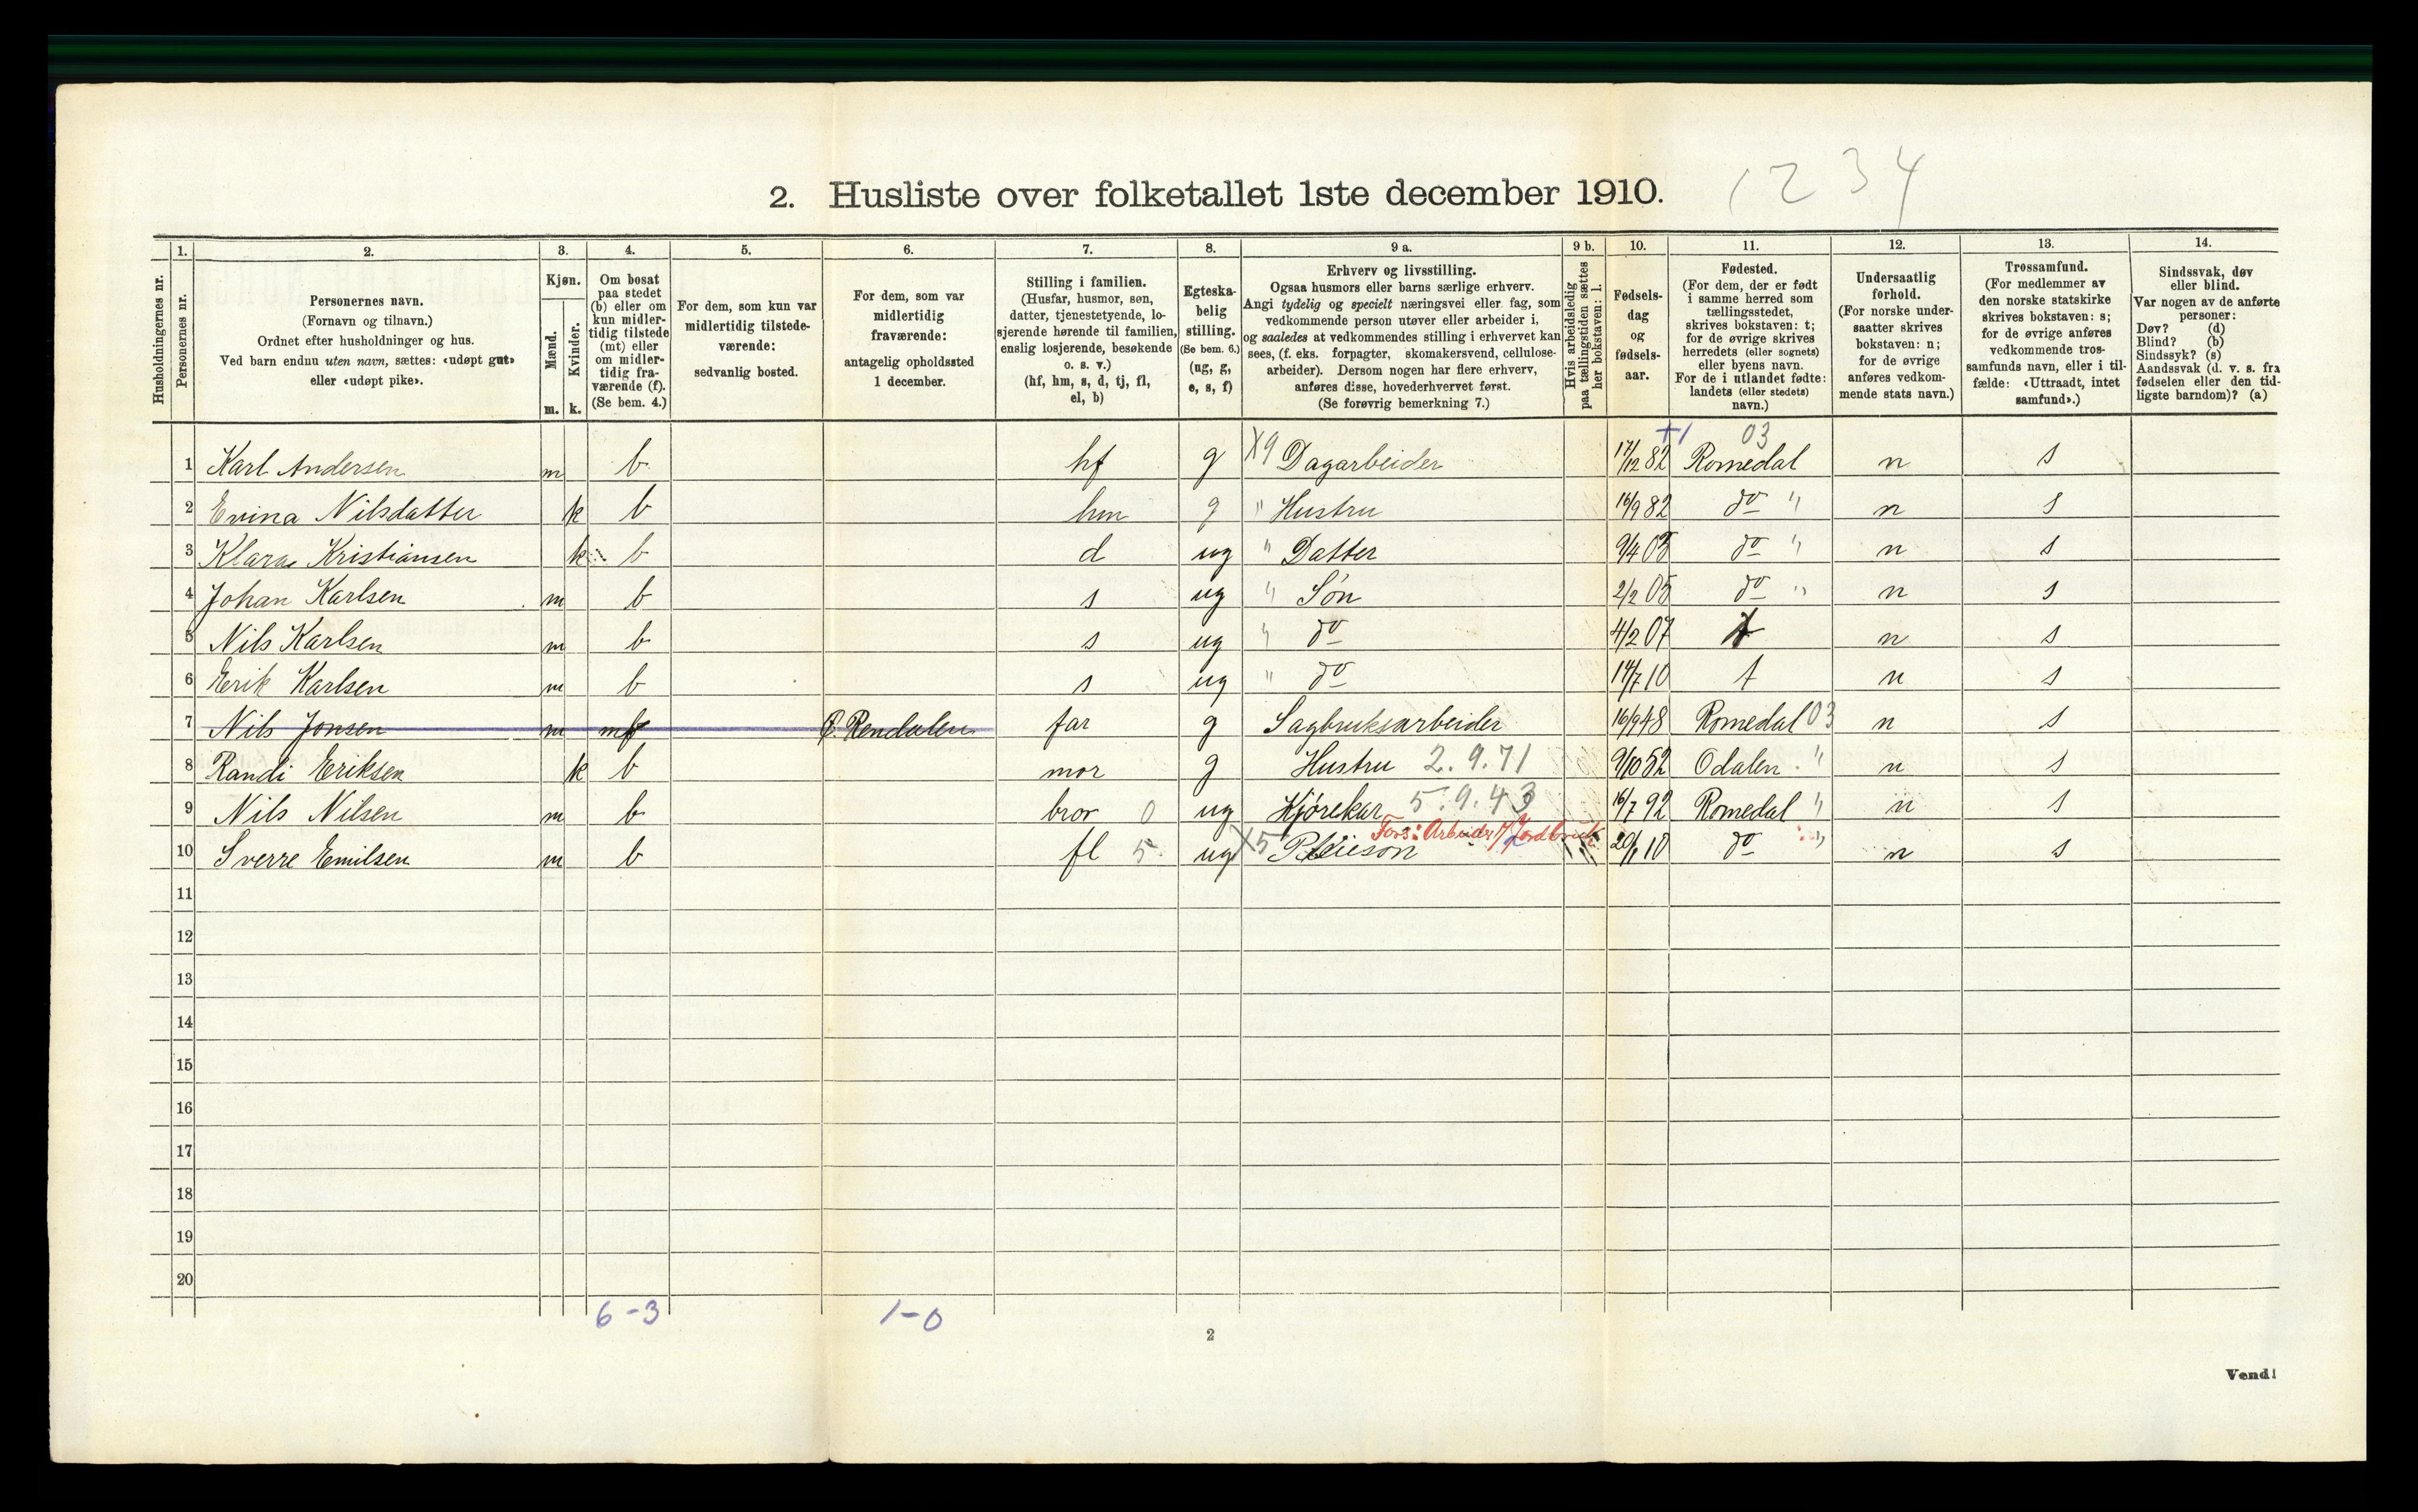 2. Husliste over folketallet 1ste december 1910. 1 2 3 4
Husholdningernes nr.
1.
Personernes nr.
2.
Personernes navn.
(Fornavn og tilnavn.)
Ordnet efter husholdninger og hus.
Ved barn endnu uten navn, sættes: «udøpt gut»
eller «udøpt pike».
3.
Kjøn.
Mænd.
Kvinder.
m. k.
4.
Om bosat
paa stedet
(b) eller om
kun midler-
tidig tilstede
(mt) eller
om midler-
tidig fra-
værende (f).
(Se bem. 4.)
5.
For dem, som kun var
midlertidig tilstede-
værende:
sedvanlig bosted.
6.
For dem, som var
midlertidig
fraværende:
antagelig opholdssted
1 december.
7.
Stilling i familien.
(Husfar, husmor, søn,
datter, tjenestetyende, lo-
sjerende hørende til familien,
enslig losjerende, besøkende
o. s. v.)
(hf, hm, s, d, tj, fl,
el, b)
8.
Egteska-
belig
stilling.
(Se bem. 6.)
(ug, g,
e, s, f)
9 a.
Erhverv og livsstilling.
Ogsaa husmors eller barns særlige erhverv.
Angi tydelig og specielt næringsvei eller fag, som
vedkommende person utøver eller arbeider i,
og saaledes at vedkommendes stilling i erhvervet kan
sees, (f. eks. forpagter, skomakersvend, cellulose-
arbeider). Dersom nogen har flere erhverv,
anføres disse, hovederhvervet først.
(Se forøvrig bemerkning 7.)
9 b.
Hvis arbeidsledig
paa tællingstiden sættes
her bokstaven: l.
10.
Fødsels-
dag
og
fødsels-
aar.
11.
Fødested.
(For dem, der er født
i samme herred som
tællingsstedet,
skrives bokstaven: t;
for de øvrige skrives
herredets (eller sognets)
eller byens navn.
For de i utlandet fødte:
landets (eller stedets)
navn.)
12.
Undersaatlig
forhold.
(For norske under-
saatter skrives
bokstaven: n;
for de øvrige
anføres vedkom-
mende stats navn.)
13.
Trossamfund.
(For medlemmer av
den norske statskirke
skrives bokstaven: s;
for de øvrige anføres
vedkommende tros-
samfunds navn, eller i til-
fælde: «Uttraadt, intet
samfund».)
14.
Sindssvak, døv
eller blind.
Var nogen av de anførte
personer:
Døv? (d)
Blind? (b)
Sindssyk? (s)
Aandssvak (d. v. s. fra
fødselen eller den tid-
ligste barndom)? (a)
+1 03
1 Karl Andersen m b hf g X9 Dagarbeider 17/12 82 Romedal n s
2 Evina Nilsdatter k b hm g " Hustru 16/9 82 do " n s
3 Klara Kristiansen k b d ug " Datter 9/4 03 do " n s
4 Johan Karlsen m b s ug " Søn 2/2 05 do " n s
5 Nils Karlsen m b s ug " do 4/2 07 t n s
6 Erik Karlsen m b s ug " do 14/7 10 t n s
7 Nils Jonsen m mf Ø. Rendalen far g Sagbruksarbeider 16/9 48 Romedal 03 n s
8 Randi Eriksen k b mor g Hustru 2.9.71 9/10 52 Odalen " n s
9 Nils Nilsen m b bror 0 ug Kjørekar 5.9.43 16/7 92 Romedal " n s
Fors: Arbeider v/ Jordbruk
10 Sverre Emilsen m b fl 5 ug X5 Pleieson 20/1 10 do " n s
11
12
13
14
15
16
17
18
19
20
6-3 1-0
2
Vend!